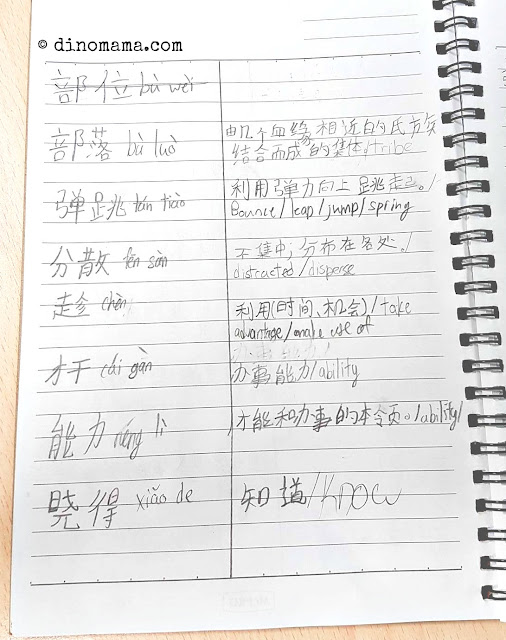 © dinomama.com
部位 bù wèi
部落 bù luò 由几个血缘相近的氏族
结合而成的集体/tribe
弹跳 tán tiào 利用弹力向上跳起。/
Bounce/leap/jump/spring
分散 fēn sàn 不集中,分布在各处。/
distracted/disperse
趁 chèn 利用(时间、机会)/take
advantage/make use of
才干 cái gàn 办事能力/ability
能力 néng lì 才能和办事的本领。/ability/
晓得 xiǎo de 知道/know